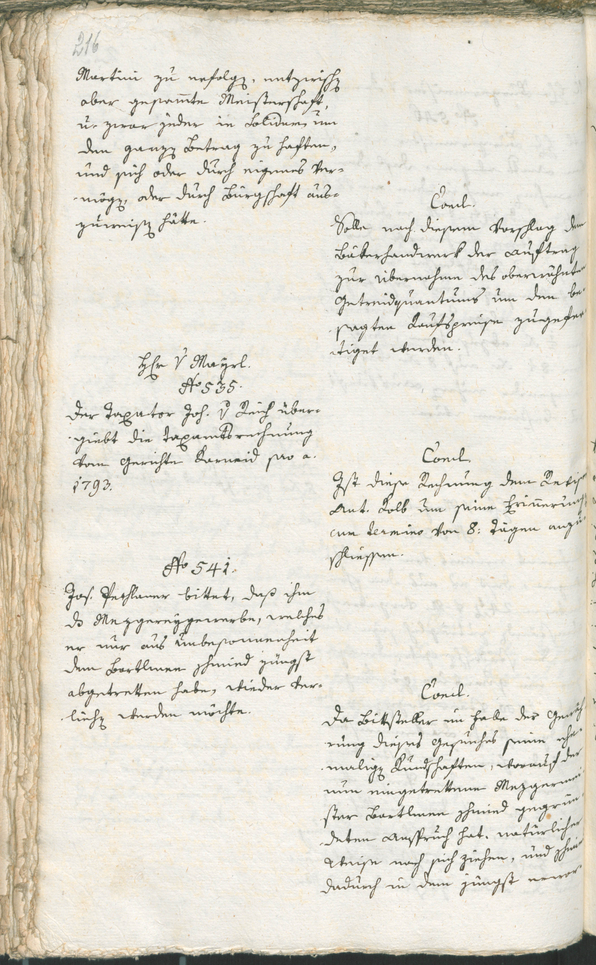 216
Martini zu erfolgg, entzwischg
aber gesammte Meisterschaft,
u. zwar jeder in Solidum um
den ganzg Betrag zu haften,
und sich oder durch eigenes Ver-
mögg, oder durch Bürgschaft aus-
zuweisg hätte.
Concl.
Solle nach diesem Vorschlag dem
Bäkerhandwerk der Auftrag
zur Übernahme des oberwähnten
Getreidquantums um den be-
sagten Kaufspreise zugefer-
tiget werden.
Hr v Mayrl.
No 535.
Der Taxator Joh. v Reich über-
giebt die Taxamtsrechnung
vom Gerichte Karneid pro a.
1793.
Concl.
Ist diese Rechnung dem
Ant. Kolb um seine Erinnerung
cum termino von 8: Tägen anzu
schliessen.
No 541.
Jos. Pechlaner bittet, daß ihm
ds Mezgereygewerbe, welches
er nur aus Unbesonnenheit
dem Bartlmen Schmied jüngst
abgetretten habe, wieder ver-
liehg werden möchte.
Concl.
Da Bittsteller im Falle der Gewäh
rung dieses Gesuches seine ehe
maligg Kundschaften, worauf der
nun eingetrettene Mezgermei
ster Bartlmen Schmied gegrün
deten Anspruch hat, natürlicher
Weise nach sich ziehen, und
dadurch in dem jüngst